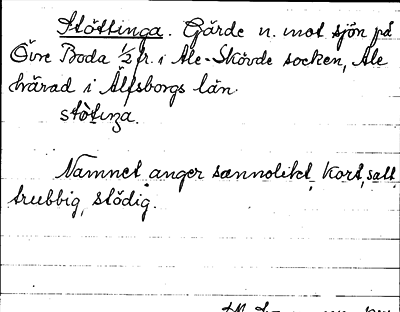 Stöttinga. Gärde n. mot sjön på
Övre Boda 1/2 fr. i Ale-Skövde socken, Ale
härad i Älfsborgs län.
stòtiŋa.
Namnet anger sannolikt, kort, satt,
trubbig, stödig.